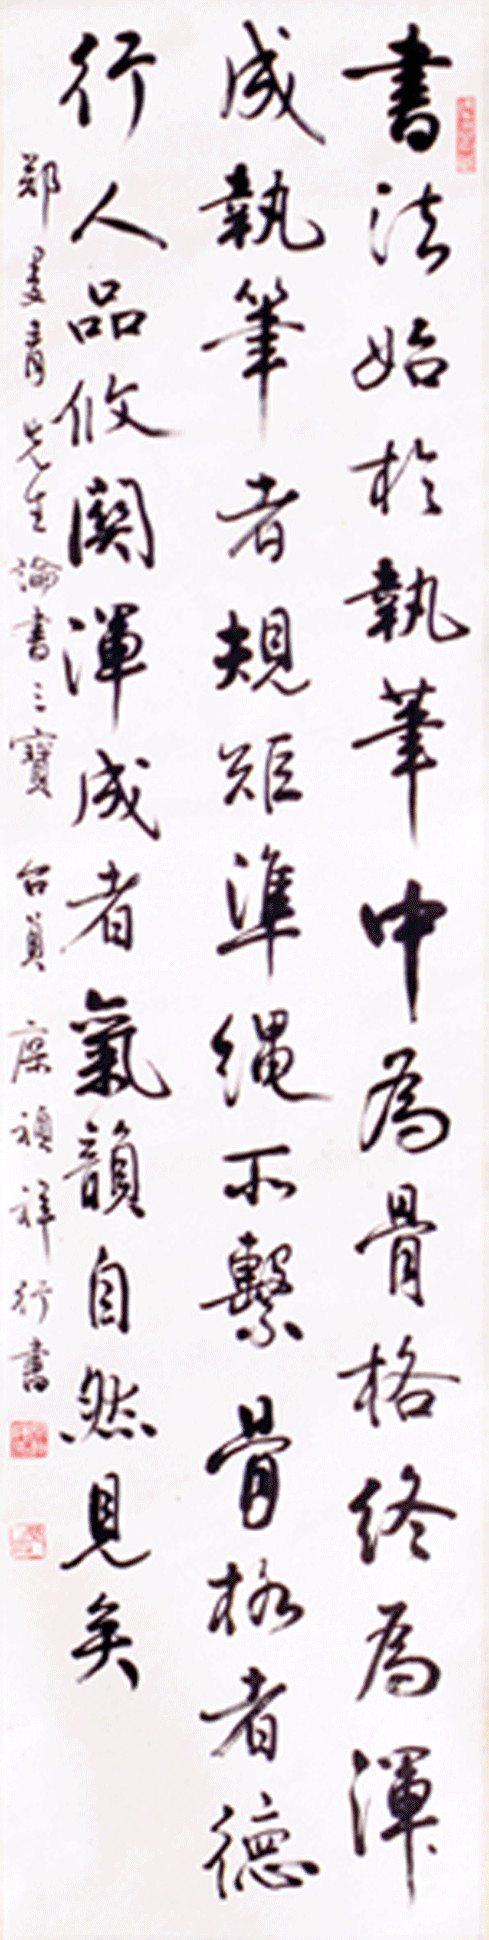 書法始於執筆中為骨格終為渾
成執筆者規矩準繩所繫骨格者德
行人品攸關渾成者氣韻自然見矣
鄭曼青先生論書三寶 台員 廖禎祥行書